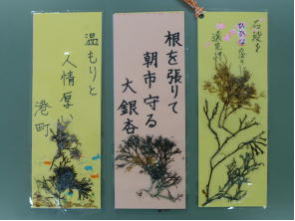 温もりと
人情厚い
港町
根を張りて
朝市守る
大銀杏
石段を